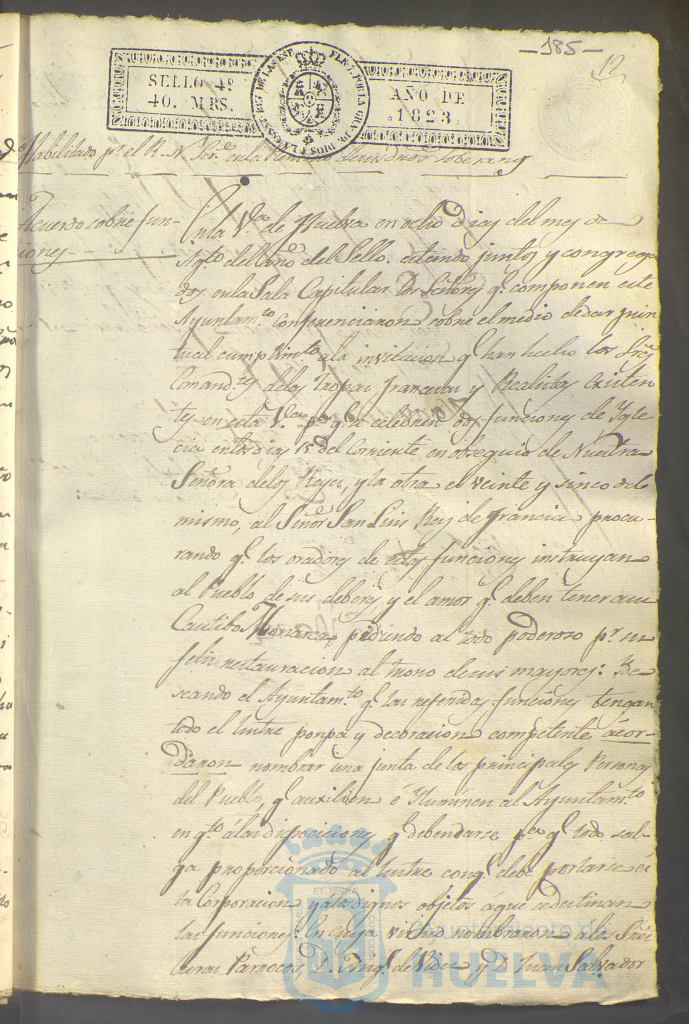 -185-
12
SELLO 4º
40. MRS.
AÑO DE
1823.
Habilitado pr. el R. N. Sor. en la
Acuerdo sobre fun-
ciones
En la Va. de Huelva en ocho dias del mes de
Agto. del año del Sello. estando juntos y congrega
dos en la Sala Capitular los Señores q. componen este
Ayuntamto. conferenciaron sobre el medio de dar pun
tual cumplimto. a la invitacion q. han hecho los Sres
Comandtes. de las tropas francesas y Realistas existen
tes en esta Va. pa. q. se celebren dos funciones de Ygle
cia en los dias 15 del Corriente en obsequio de Nuestra
Señora de los Reyes, y la otra el veinte y sinco del
mismo, al Señor San Luis Rey de Francia procu-
rando q. los oradores de estas funciones instruyan
al Pueblo de sus deberes y el amor q. deben tener a su
Cautibo Monarca, pidiendo al todo poderoso pr. su
feliz restauracion al trono de sus mayores: De
seando el Ayuntamto. q. las referidas funciones tengan
todo el lustre ponpa y decoracion competente acor-
daron nombrar una junta de las principales Personas
del Pueblo, q. auxilien é Yluminen al Ayuntamto.
en qto. á las disposiciones q. deben darse pa. q. todo sal-
ga proporcionado al lustre con q. debe portarse es
ta Corporacion y a los dignos objetos á que se destinan
las funciones: En cuya virtud nombraron a los Sres
Curas Parrocos, D. de y D. Juan Salvador
Ayuntamiento de
HUELVA